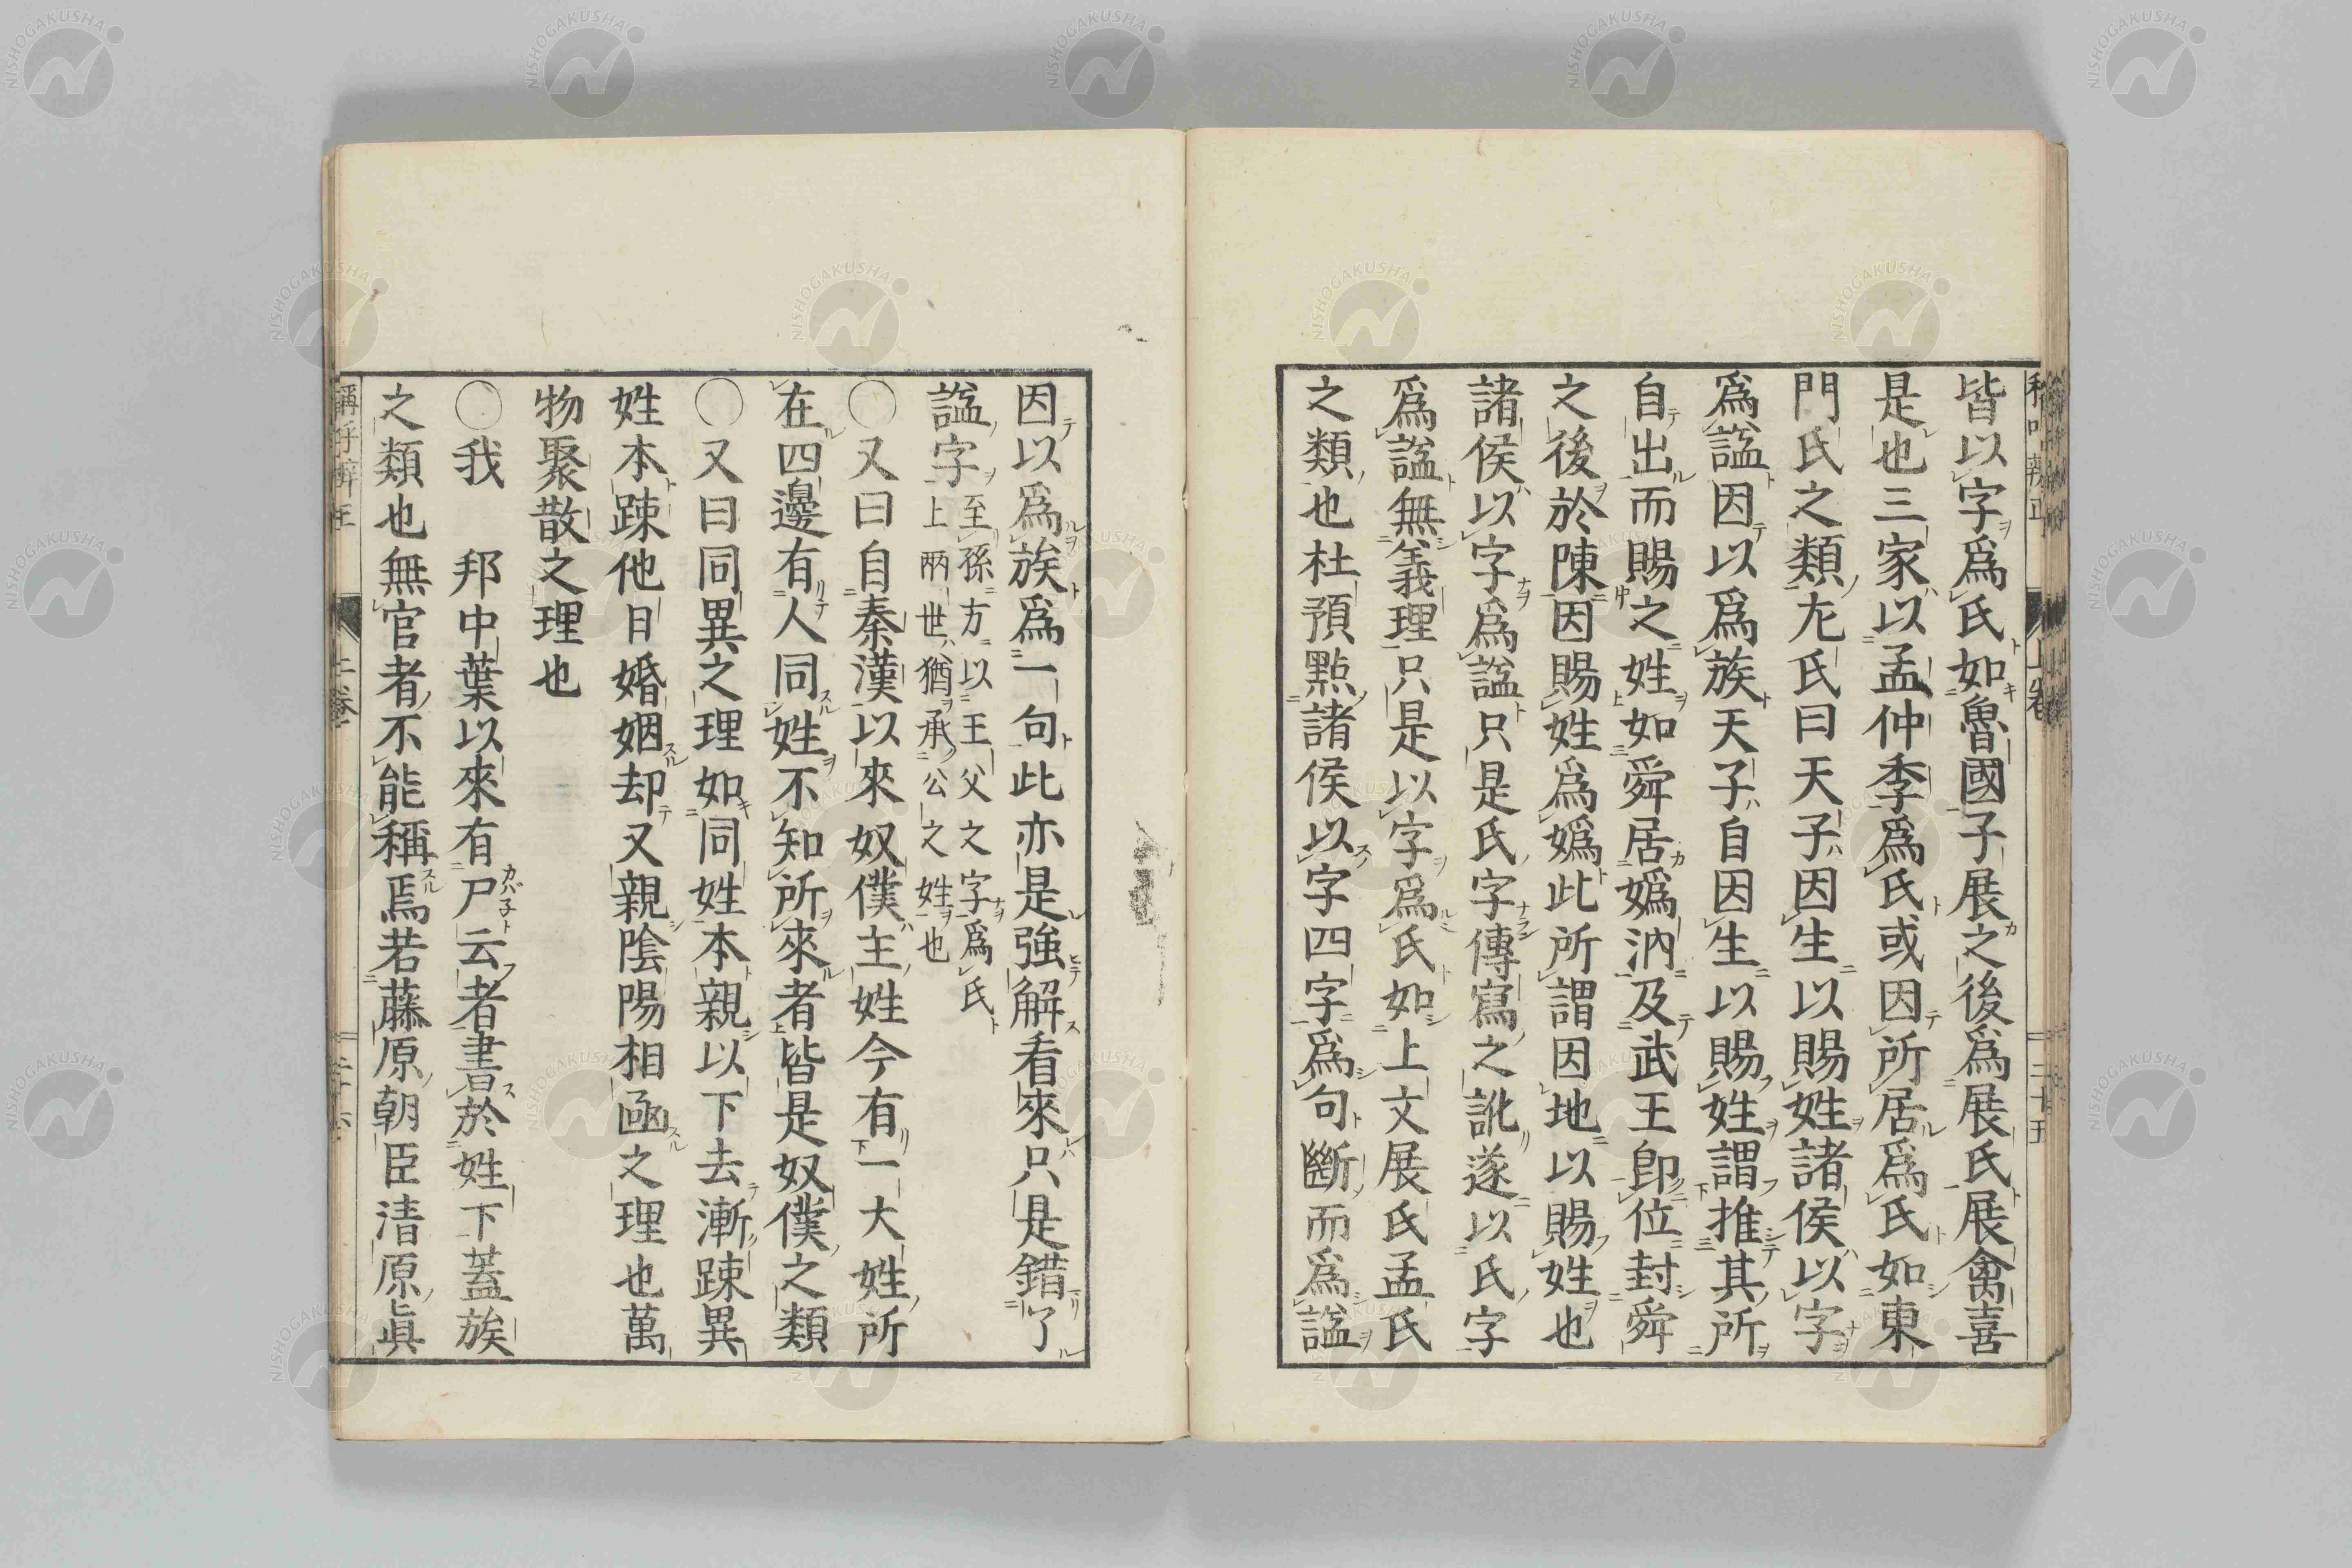 皆以字爲氏如魯國子展之後爲展氏展禽喜
是也三家以孟仲季爲氏或因所居爲氏如東
門氏之類左氏曰天子因生以賜姓諸侯以字
爲諡因以爲族天子自因生以賜姓謂推其所
自出而賜之姓如舜居嬀汭及武王即位封舜
之後於陳因賜姓爲嬀此所謂因地以賜姓也
諸侯以字爲諡只是氏字傳寫之訛遂以氏字
爲諡無義理只是以字爲氏如上文展氏孟氏
之類也杜預點諸侯以字四字爲句斷而爲諡
因以爲族爲一句此亦是強解看來只是錯了
諡字至孫方以王父之字爲氏
上兩世猶承公之姓也
〇又曰自秦漢以來奴僕主姓今有一大姓所
在四邊有人同姓不知所來者皆是奴僕之類
〇又曰同異之理如同姓本親以下去漸踈異
姓本踈他日婚姻却又親陰陽相凾之理也萬
物聚散之理也
〇我 邦中葉以來有尸云者書於姓下蓋族
之類也無官者不能稱焉若藤原朝臣清原眞
上卷
二十五
NISHOGAKUSHA